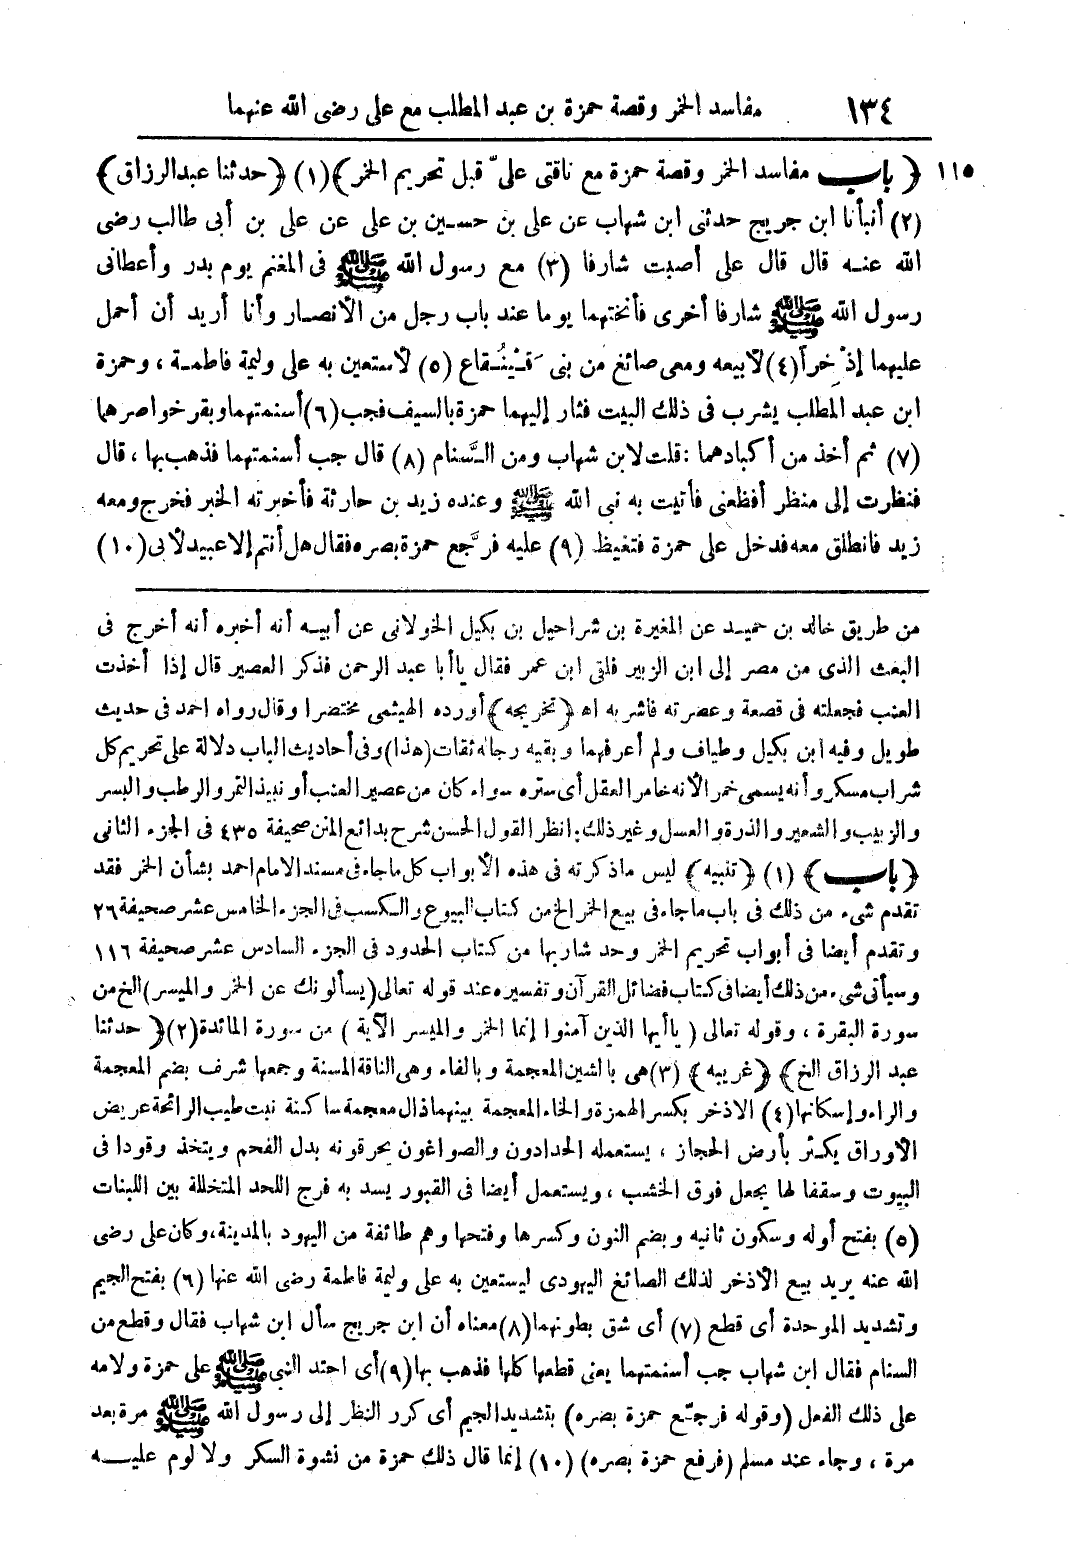 ١٣٤ مفاسد الخمر وقصة حمزة بن عبد المطلب مع على رضى الله عنهما
١١٥ ﴿ باب مفاسد الخمر وقصة حمزة مع ناقتى علىّ قبل تحريم الخمر﴾ (١) ﴿حدثنا عبدالرزاق﴾
(٢) أنبأنا ابن جريج حدثنى ابن شهاب عن على بن حسين بن على عن على بن أبى طالب رضى
الله عنه قال قال على أصبت شارفا (٣) مع رسول الله ﷺ فى المغنم يوم بدر وأعطانى
رسول الله ﷺ شارفا أخرى فأنختهما يوما عند باب رجل من الأنصار وأنا أريد أن أحمل
عليهما إذْخِراً (٤) لأبيعه ومعى صائغ من بنى قَيْنُقاع (٥) لأستعين به على وليمة فاطمة ، وحمزة
ابن عبد المطلب يشرب فى ذلك البيت فثار إليهما حمزة بالسيف فجب (٦) أسنمتهما وبقر خواصرهما
(٧) ثم أخذ من أكبادهما : قلت لابن شهاب ومن السَّنام (٨) قال جب أسنمتهما فذهب بها ، قال
فنظرت إلى منظر أفظعنى فأتيت به نبى الله ﷺ وعنده زيد بن حارثة فأخبرته الخبر فخرج ومعه
زيد فانطلق معه فدخل على حمزة فتغيظ (٩) عليه فرجَّع حمزة بصره فقال هل أنتم إلا عبيد لأبى (١٠)
من طريق خالد بن حميد عن المغيرة بن شراحيل بن بكيل الخولانى عن أبيه أنه أخبره أنه أخرج فى
البعث الذى من مصر إلى ابن الزبير فلقى ابن عمر فقال يا أبا عبد الرحمن فذكر العصير قال إذا أخذت
العنب فجعلته فى قصعة وعصرته فاشربه اه ﴿تخريجه﴾ أورده الهيثمى مختصرا وقال رواه احمد فى حديث
طويل وفيه ابن بكيل وطياف ولم أعرفهما وبقيه رجاله ثقات (هذا) وفى أحاديث الباب دلالة على تحريم كل
شراب مسكر وأنه يسمى خمرا لأنه خامر العقل أى ستره سواء كان من عصير العنب أو نبيذ التمر والرطب والبسر
والزبيب والشعير والذرة والعسل وغير ذلك : انظر القول الحسن شرح بدائع المنن صحيفة ٤٣٥ فى الجزء الثانى
﴿باب﴾ (١) ﴿تنبيه﴾ ليس ماذكرته فى هذه الأبواب كل ماجاء فى مسند الامام احمد بشأن الخمر فقد
تقدم شىء من ذلك فى باب ماجاء فى بيع الخمر الخ من كتاب البيوع والكسب فى الجزء الخامس عشر صحيفة ٢٦
وتقدم أيضا فى أبواب تحريم الخمر وحد شاربها من كتاب الحدود فى الجزء السادس عشر صحيفة ١١٦
وسيأتى شىء من ذلك أيضا فى كتاب فضائل القرآن وتفسيره عند قوله تعالى (يسألونك عن الخمر والميسر) الخ من
سورة البقرة ، وقوله تعالى ( ياأيها الذين آمنوا إنما الخمر والميسر الآية ) من سورة المائدة (٢) ﴿ حدثنا
عبد الرزاق الخ﴾ ﴿غريبه﴾ (٣) هى بالشين المعجمة وبالفاء وهى الناقة المسنة وجمعها شرف بضم المعجمة
والراء وإسكانها (٤) الاذخر بكسر الهمزة والخاء المعجمة بينهما ذال معجمة ساكنة نبت طيب الرائحة عريض
الأوراق يكثر بأرض الحجاز ، يستعمله الحدادون والصواغون يحرقونه بدل الفحم ويتخذ وقودا فى
البيوت وسقفا لها يجعل فوق الخشب ، ويستعمل أيضا فى القبور يسد به فرج اللحد المتخللة بين اللبنات
(٥) بفتح أوله وسكون ثانيه وبضم النون وكسرها وفتحها وهم طائفة من اليهود بالمدينة، وكان على رضى
الله عنه يريد بيع الأذخر لذلك الصائغ اليهودى ليستعين به على وليمة فاطمة رضى الله عنها (٦) بفتح الجيم
وتشديد الموحدة أى قطع (٧) أى شق بطونهما (٨) معناه أن ابن جريج سأل ابن شهاب فقال وقطع من
السنام فقال ابن شهاب جب أسنمتهما يعنى قطعها كلها فذهب بها (٩) أى احتد النبى ﷺ على حمزة ولامه
على ذلك الفعل (وقوله فرجّع حمزة بصره) بتشديد الجيم أى كرر النظر إلى رسول الله ﷺ مرة بعد
مرة ، وجاء عند مسلم (فرفع حمزة بصره) (١٠) إنما قال ذلك حمزة من نشوة السكر ولا لوم عليه